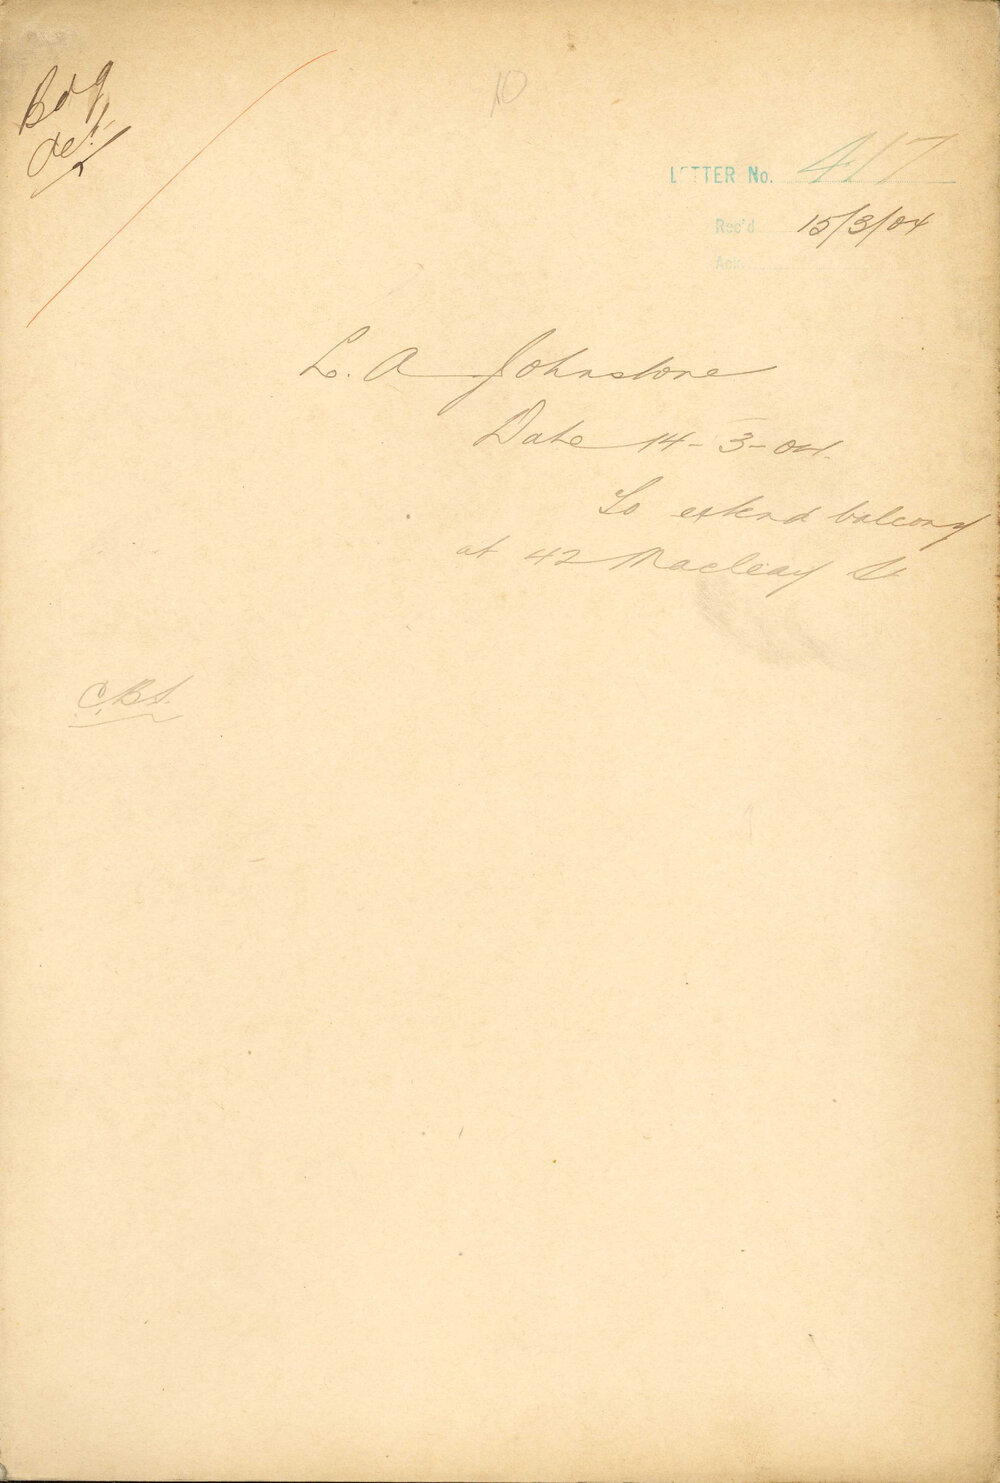 Bdg
Act
10
LETTER No. 417
Rec'd 15/3/04
Ack.
L. A Johnstone
Date 14-3-04.
To extend balcony
at 42 Macleay St
C.B.S.